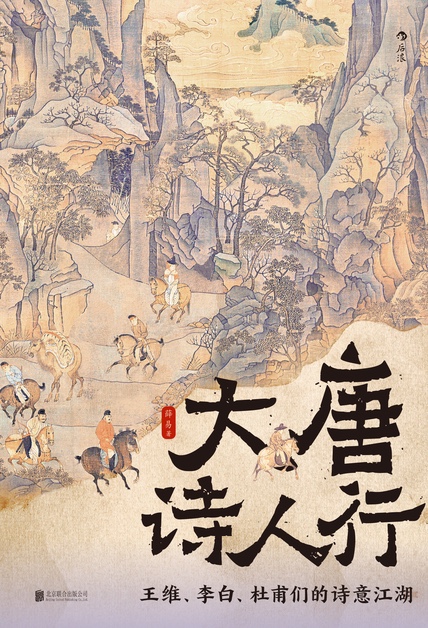 后浪
大唐
诗人行
薛易 著
王维、李白、杜甫们的诗意江湖
北京联合出版公司